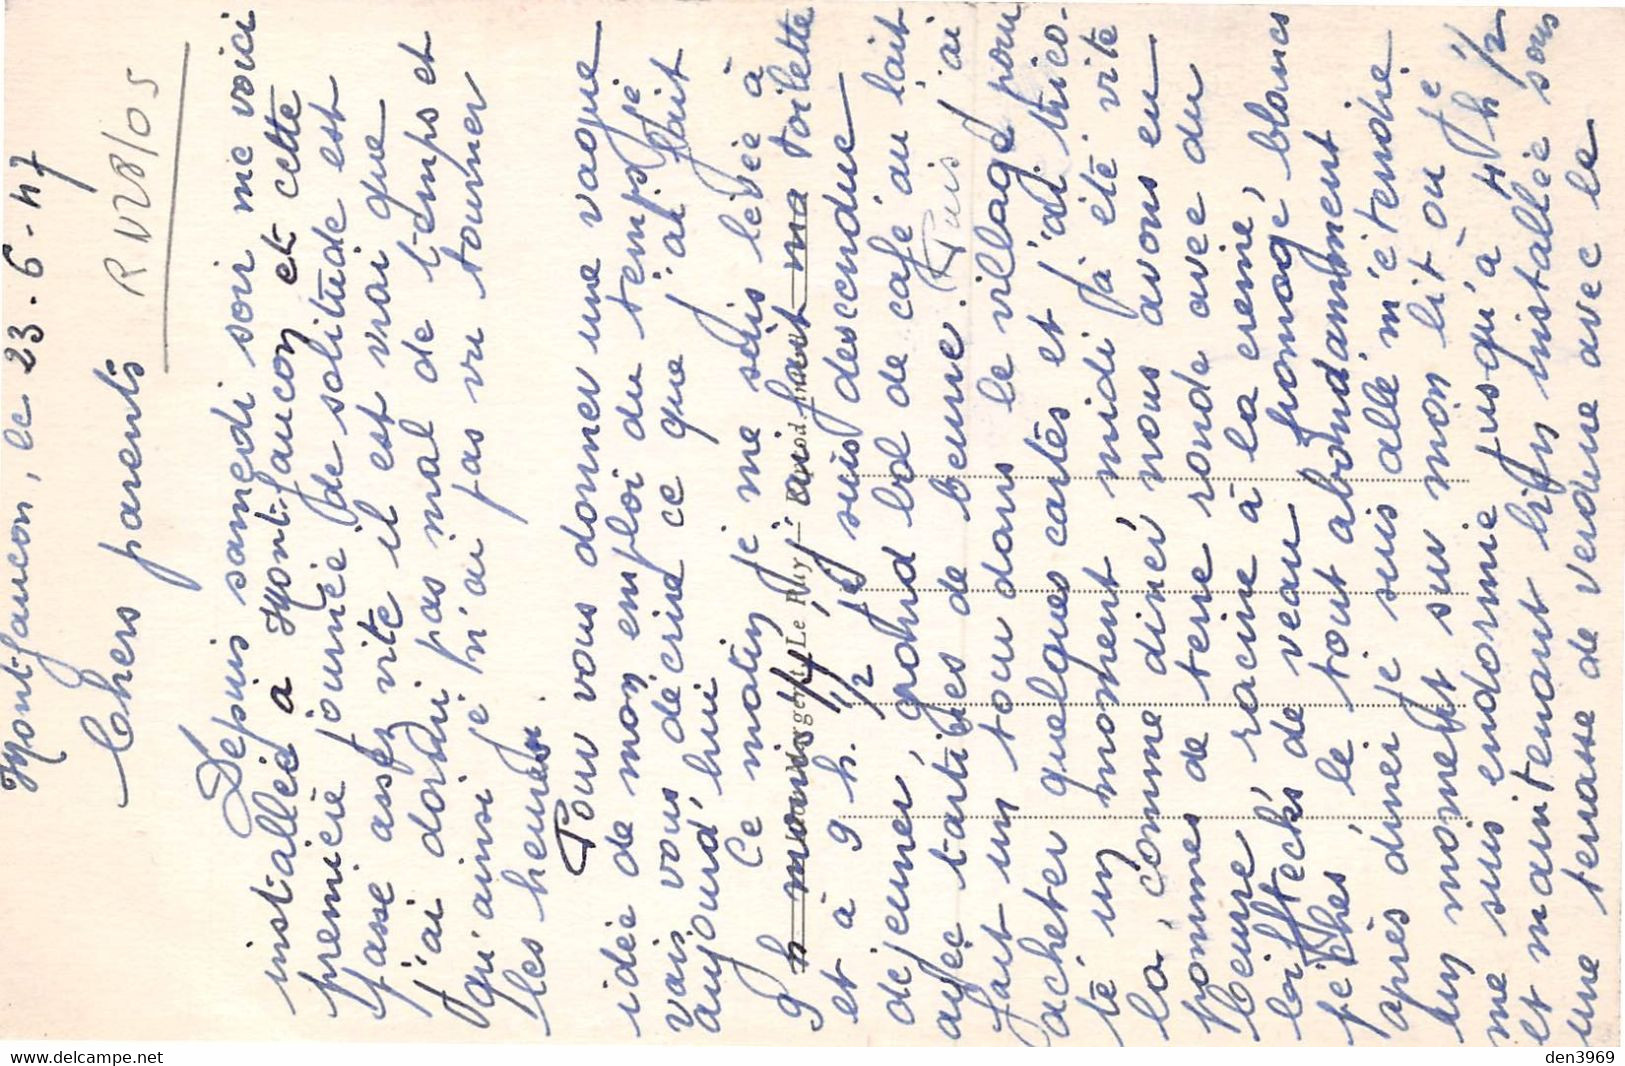 Montfaucon, le 23-6-47
Chers parents
R N28/05
Depuis samedi soir me voici
installée à Montfaucon et cette
première journée de solitude est
passé assez vite il est vrai que
j'ai dormi pas mal de temps et
qu'ainsi je n'ai pas vu tourner
les heures.
Pour vous donner une vague
idée de mon emploi du temps je
vais vous décrire ce que j'ai fait
aujourd'hui
Ce matin je me suis levée à
9 h moins 1/4 ai fait ma toilette
et à 9 h. 1/2 je suis descendue
dejeuner, grand bol de café au lait
avec tartines de beurre. Puis j'ai
fait un tour dans le village pour
acheter quelques cartes et j'ai trico-
té un moment, midi a été vite
là, comme diner nous avons eu
pommes de terre ronde avec du
beurre, racine à la creme,
biftecks de veau fromage blancs
pêches le tout abondamment
après diner je suis allé m'étendre
un moment sur mon lit ou je
me suis endormie jusqu'à 4 h 1/2
et maintenant bien installée sous
une terrasse de verdure avec le
den3969